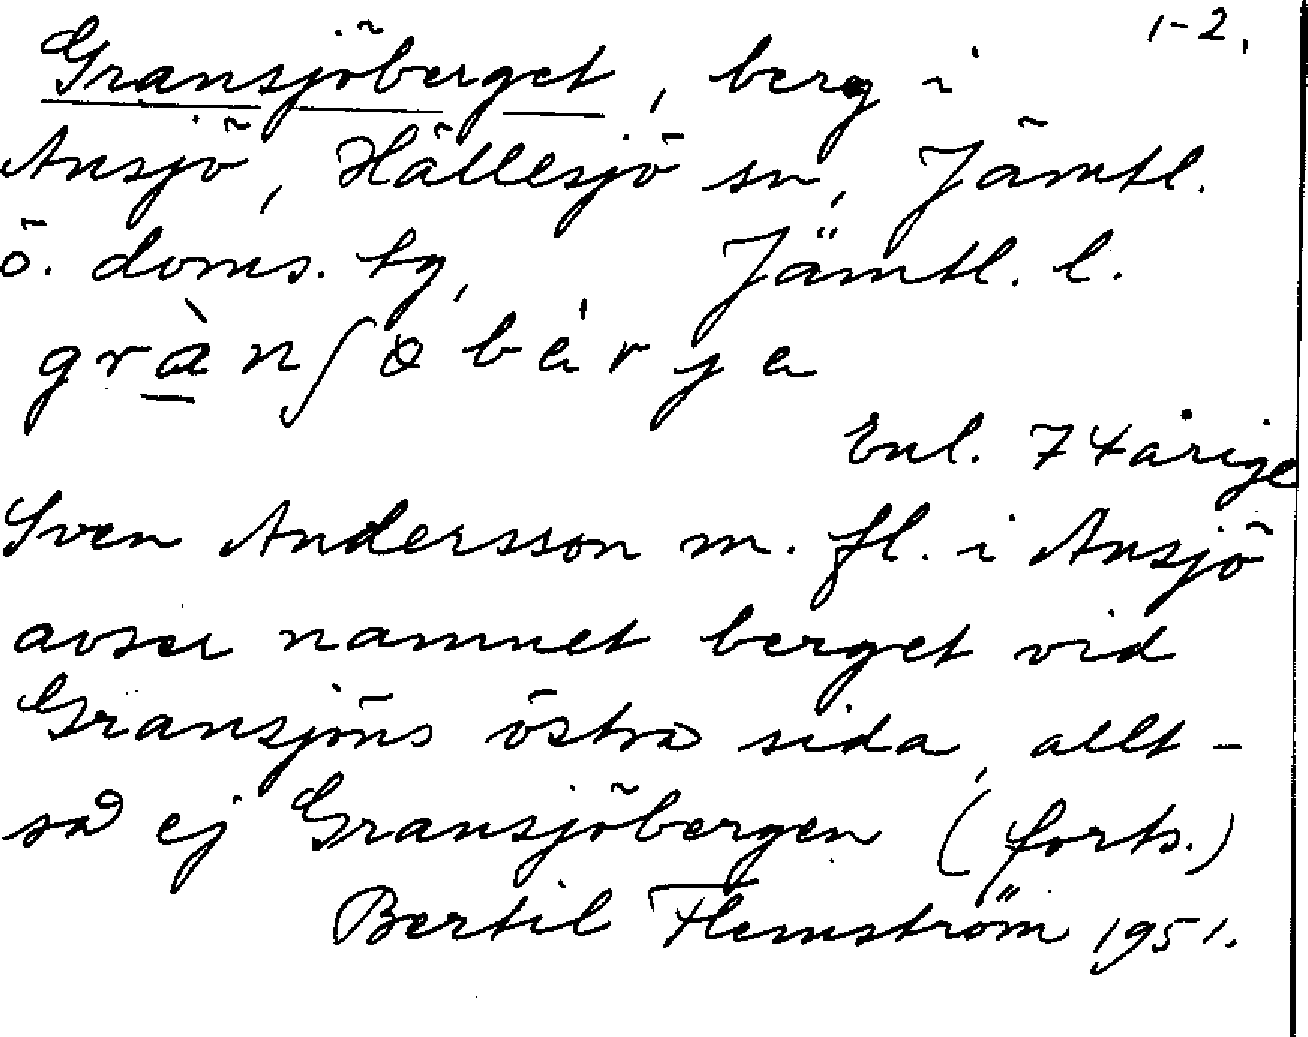 1-2.
Gransjöberget, berg i
Ansjö, Hällesjö sn, Jämtl.
ö. doms. tg, Jämtl. l.
grànʃöbärje
Enl. 74årige
Sven Andersson m. fl. i Ansjö
avser namnet berget vid
Gransjöns östra sida, allt-
så ej Gransjöbergen (forts.)
Bertil Flemström 1951.